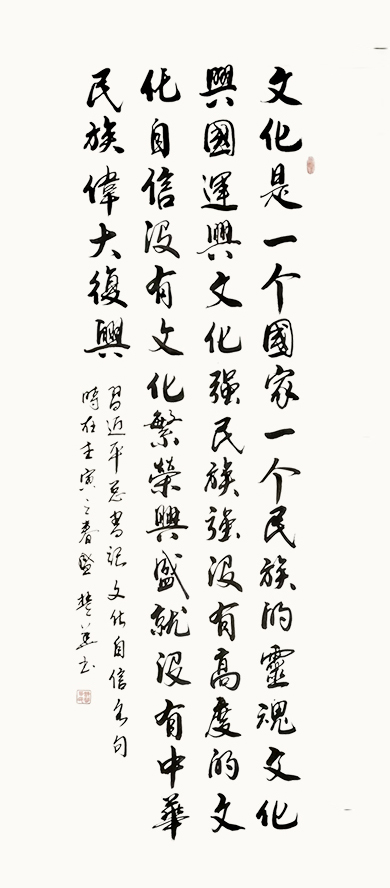 文化是一个國家一个民族的靈魂文化
興國運興文化强民族强没有高度的文
化自信没有文化繁榮興盛就没有中華
民族偉大復興
習近平总書记文化自信名句
時在壬寅之春